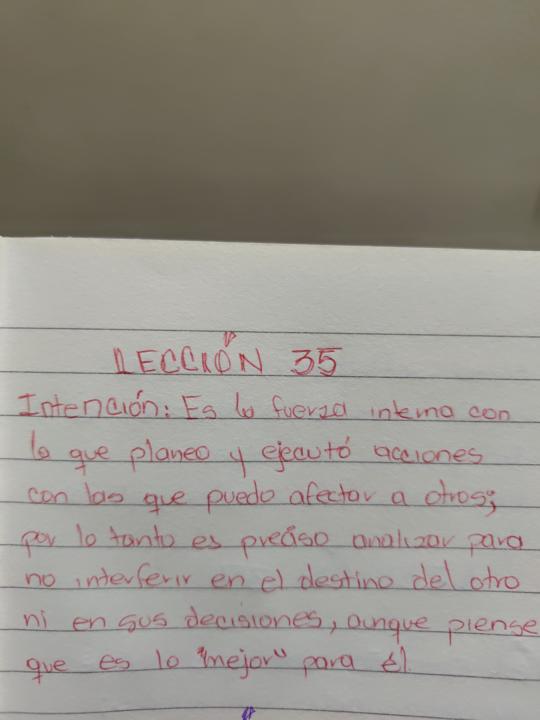 LECCIÓN 35
Intención: Es la fuerza interna con
la que planeo y ejecutó acciones
con las que puedo afectar a otros;
por lo tanto es preciso analizar para
no interferir en el destino del otro
ni en sus decisiones, aunque piense
que es lo "mejor" para él.